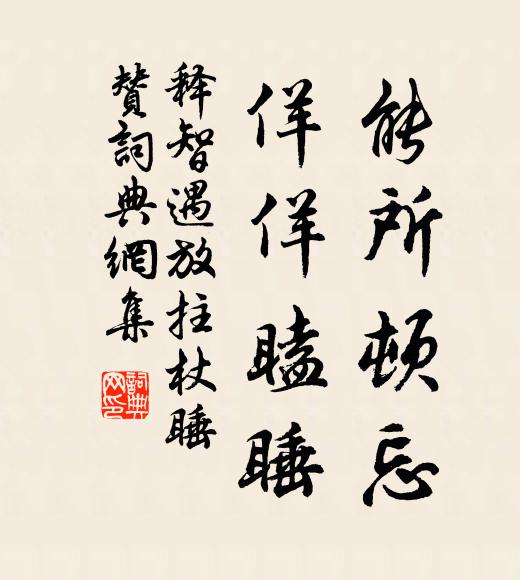 能所頓忘
佯佯瞌睡
释智遇放拄杖睡
贊詞典網集
詞典网印